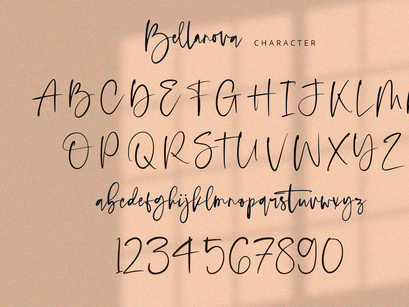 Bellanova CHARACTER
ABCDEFGHIJKLM
OPQRSTUVWXYZ
abcdefghijklmnopqrstuvwxyz
1234567890